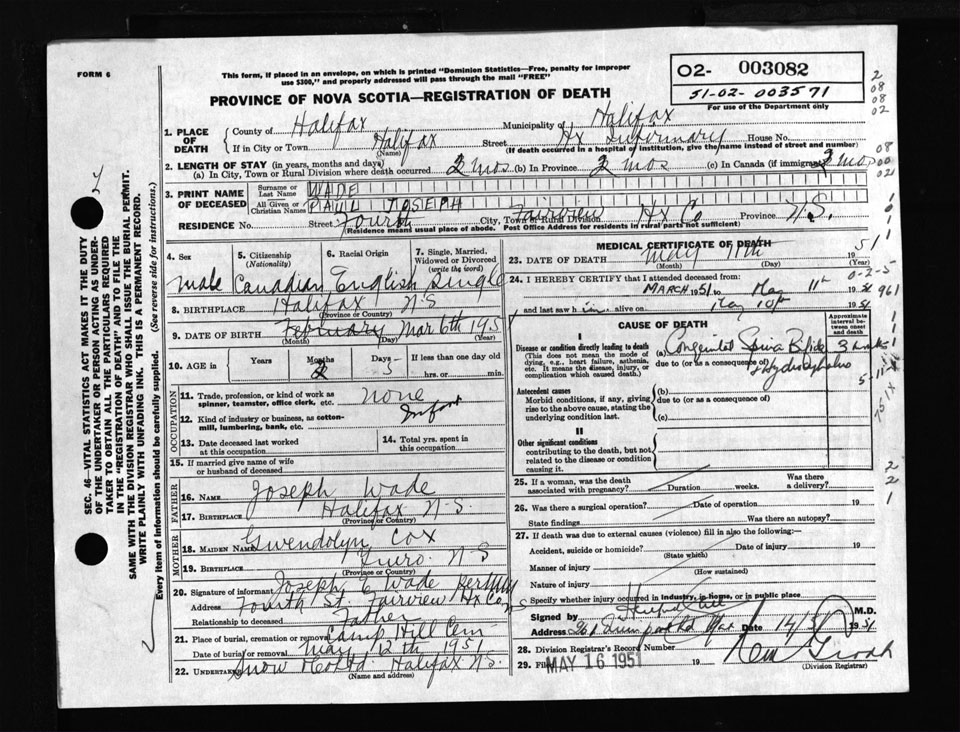 FORM 6
This form, if placed in an envelope, on which is printed "Dominion Statistics—Free, penalty for improper
use $300," and properly addressed will pass through the mail "FREE"
O2- 003082
51-02-003571
For use of the Department only
PROVINCE OF NOVA SCOTIA—REGISTRATION OF DEATH
1. PLACE OF DEATH
County of Halifax Municipality of Halifax
If in City or Town Halifax Street Hx Infirmary House No.
(Name) (If death occurred in a hospital of institution, give the name instead of street and number)
2. LENGTH OF STAY (in years, months and days)
(a) In City, Town or Rural Division where death occurred 2 mos (b) In Province 2 mos (c) In Canada (if immigrant) 2 mos
3. PRINT NAME OF DECEASED
Surname or Last Name WADE
All Given or Christian Names PAUL JOSEPH
RESIDENCE No. Street Fourth City, Town or Rural Division Fairview Hx Co Province N.S.
(Residence means usual place of abode. Post Office Address for residents in rural parts not sufficient)
4. Sex male
5. Citizenship (Nationality) Canadian
6. Racial Origin English
7. Single, Married, Widowed or Divorced (write the word) Single
8. BIRTHPLACE Halifax N S
(Province or Country)
9. DATE OF BIRTH February Mar 6th 195
(Month) (Day) (Year)
10. AGE in Years Months 2 Days 5 If less than one day old
hrs. or min.
OCCUPATION
11. Trade, profession, or kind of work as spinner, teamster, office clerk, etc. none
12. Kind of industry or business, as cotton-mill, lumbering, bank, etc. Infant
13. Date deceased last worked at this occupation
14. Total yrs. spent in this occupation
15. If married give name of wife or husband of deceased
FATHER
16. NAME Joseph Wade
17. BIRTHPLACE Halifax N.S.
(Province or Country)
MOTHER
18. MAIDEN NAME Gwendolyn Cox
19. BIRTHPLACE Truro N S
(Province or Country)
20. Signature of informant Joseph E Wade
Address Fourth St. Fairview Hx Co NS
Relationship to deceased Father
21. Place of burial, cremation or removal Camp Hill Cem
Date of burial or removal May 12th 1951
22. UNDERTAKER Snow Co Ltd Halifax N.S.
(Name and address)
MEDICAL CERTIFICATE OF DEATH
23. DATE OF DEATH May 11th 1951
(Month) (Day) (Year)
24. I HEREBY CERTIFY that I attended deceased from:
MARCH 1951 to May 11th 1951
and last saw him alive on May 10th 1951
CAUSE OF DEATH
Approximate interval between onset and death
I
Disease or condition directly leading to death
(This does not mean the mode of dying, e.g., heart failure, asthenia, etc. It means the disease, injury, or complication which caused death.)
(a) Congenital Spina Bifida
due to (or as a consequence of) + Hydrocephalus
Antecedent causes
Morbid conditions, if any, giving rise to the above cause, stating the underlying condition last.
(b)
due to (or as a consequence of)
(c)
II
Other significant conditions
contributing to the death, but not related to the disease or condition causing it.
25. If a woman, was the death associated with pregnancy? Duration weeks. Was there a delivery?
26. Was there a surgical operation? Date of operation 19
State findings Was there an autopsy?
27. If death was due to external causes (violence) fill in also the following:
Accident, suicide or homicide? Date of injury 19
(State which)
Manner of injury
(How sustained)
Nature of injury
Specify whether injury occurred in industry, in home, or in public place
Signed by M.D.
Address Date 14/5/ 1951
28. Division Registrar's Record Number
29. Filed MAY 16 1951 19
(Division Registrar)
SEC. 46—VITAL STATISTICS ACT MAKES IT THE DUTY
OF THE UNDERTAKER OR PERSON ACTING AS UNDER-
TAKER TO OBTAIN ALL THE PARTICULARS REQUIRED
IN THE "REGISTRATION OF DEATH" AND TO FILE THE
SAME WITH THE DIVISION REGISTRAR WHO SHALL ISSUE THE BURIAL PERMIT.
WRITE PLAINLY WITH UNFADING INK. THIS IS A PERMANENT RECORD.
Every item of information should be carefully supplied. (See reverse side for instructions.)